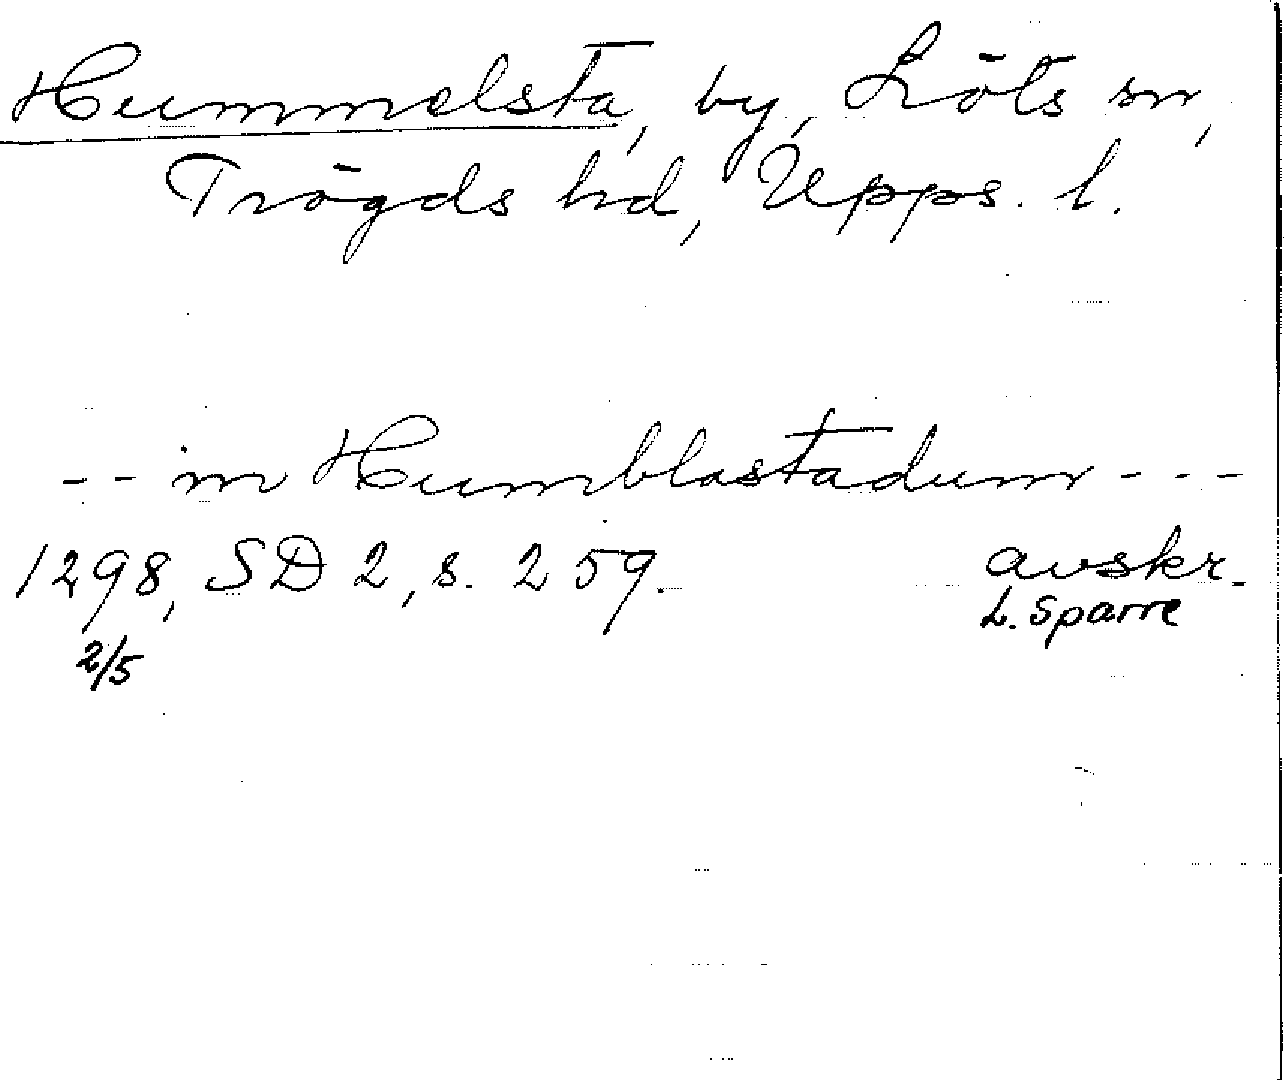 Hummelsta, by, Löts sn,
Trögds hd, Upps. l.
-- in Humblastadum ---
1298, SD 2, s. 259. avskr.
2/5 L. Sparre